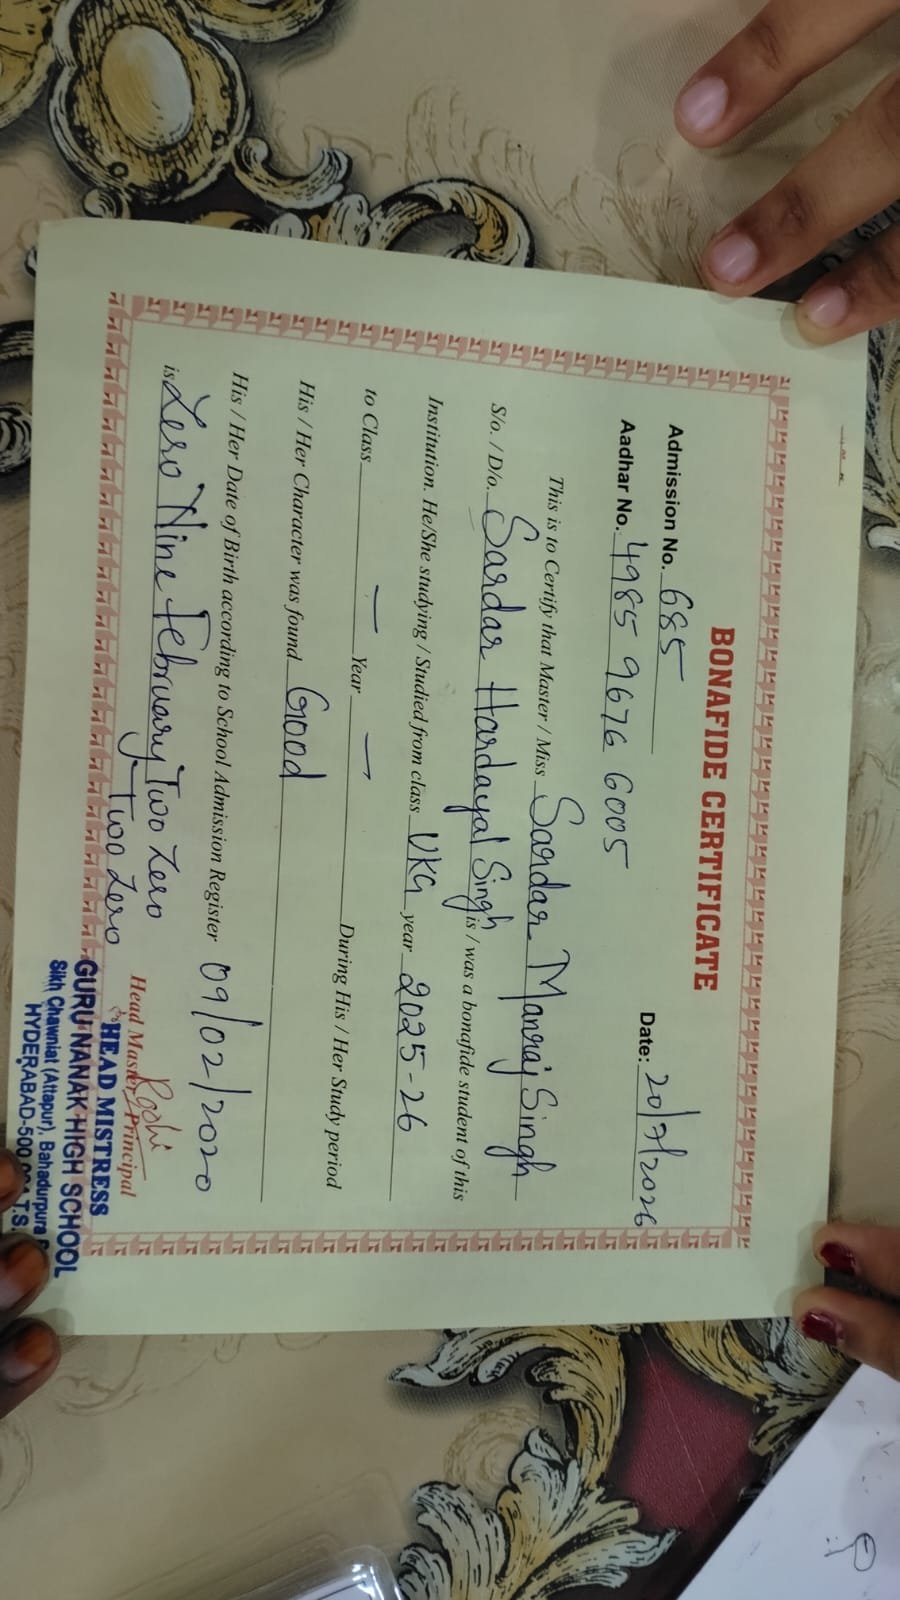 BONAFIDE CERTIFICATE
Admission No. 685
Date: 20/7/2026
Aadhar No. 4985 9676 6005
This is to Certify that Master / Miss Sardar Manraj Singh
S/o. / D/o. Sardar Hardayal Singh is / was a bonafide student of this
Institution. He/She studying / Studied from class UKG year 2025-26
to Class — Year — During His / Her Study period
His / Her Character was found Good
His / Her Date of Birth according to School Admission Register 09/02/2020
is Zero Nine February Two Zero
Two Zero
Head Master / Principal
HEAD MISTRESS
GURU NANAK HIGH SCHOOL
Sikh Chawniat (Attapur), Bahadurpura
HYDERABAD-500 T.S.